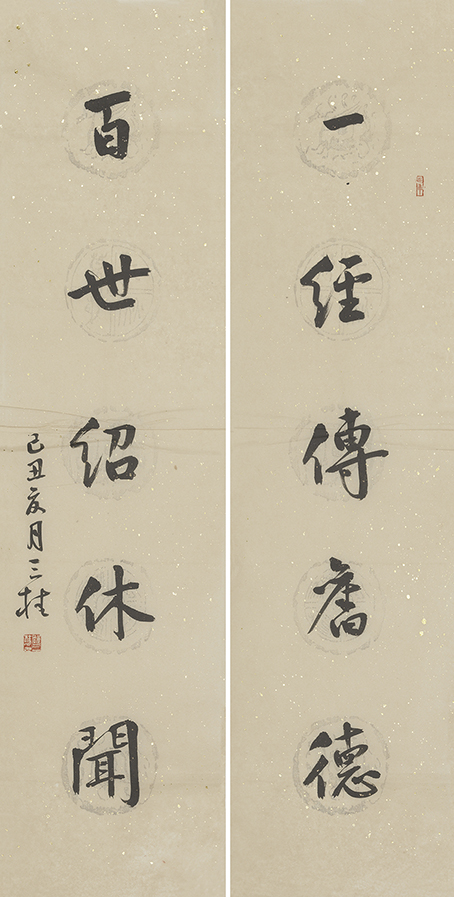 一經傳舊德
百世紹休聞
己丑亥月三桂